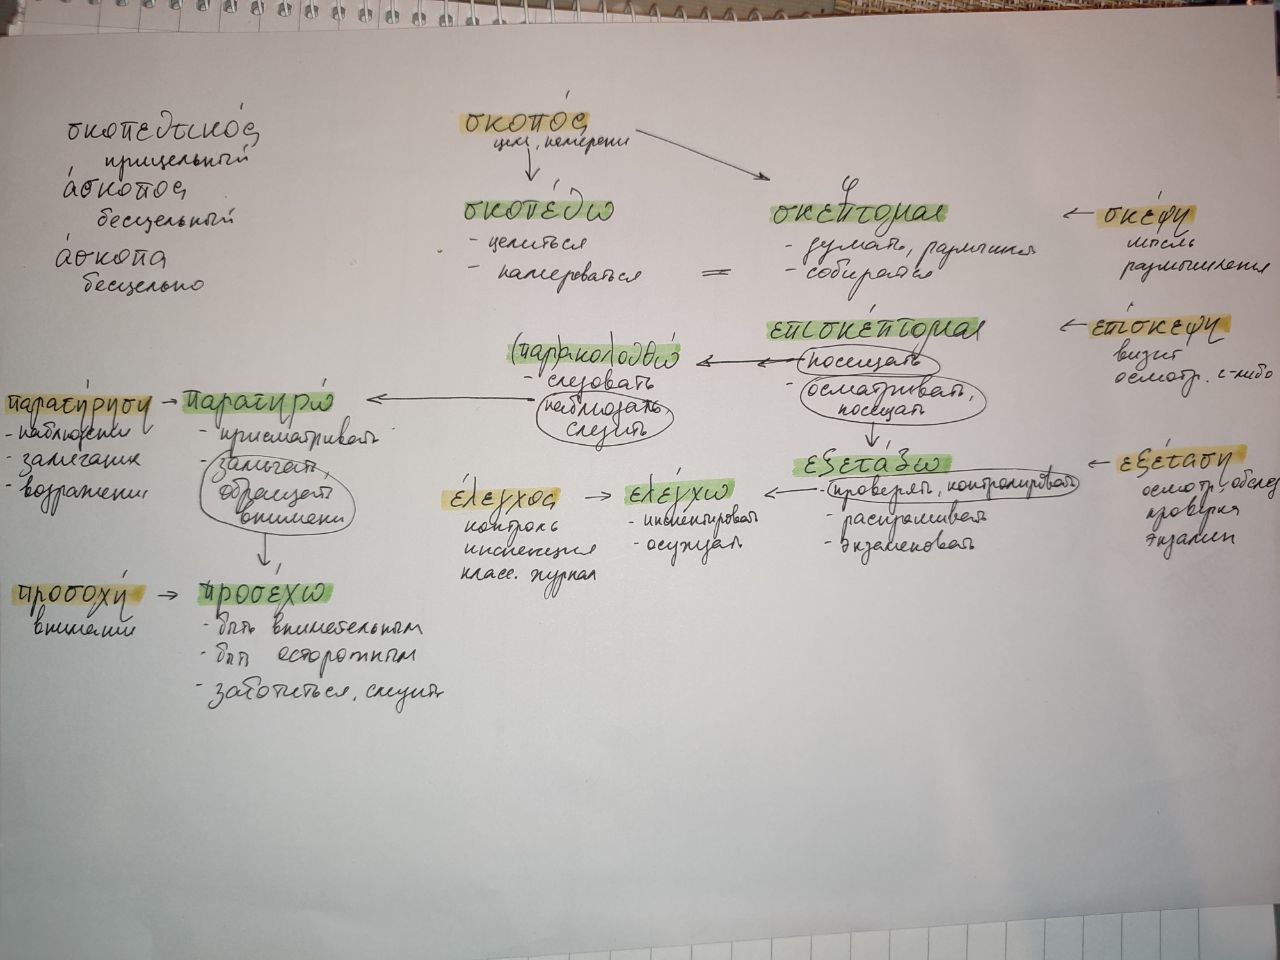 σκοπευτικός
прицельный
άσκοπος
бесцельный
άσκοπα
бесцельно
σκοπός
цель, намерени
σκοπεύω
- целиться
- намереваться
=
φ
σκέπτομαι
- думать, размышля
- собираться
← σκέψη
мысль
размышления
επισκέπτομαι
посещать
- осматривать,
посещать
← επίσκεψη
визит
осмотр. ч-либо
(παρ)ακολουθώ
- следовать
наблюдать,
следить
παρατήρηση →
- наблюдени
- замечание
- возражени
παρατηρώ
- присматривать
- замечать,
обращать
внимани
εξετάζω
- проверять, контролировать
- распрашивать
- экзаменовать
← εξέταση
осмотр, обслед
проверка
экзамен
έλεγχος →
контроль
инспекция
класс. журнал
ελέγχω
- инспектировать
- осуждать
προσοχή →
внимани
προσέχω
- быть внимательным
- быть осторожным
- заботиться, следить